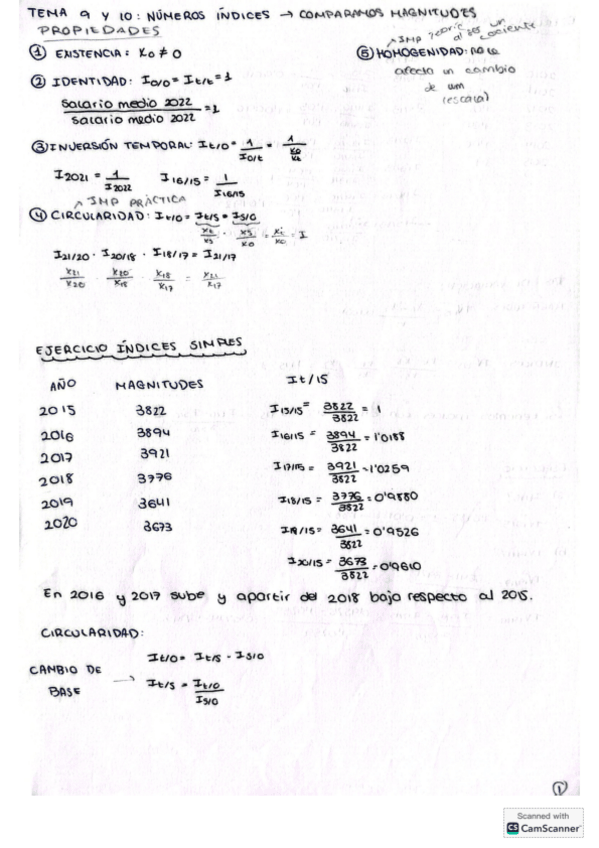 TEMA 9 Y 10: NÚMEROS ÍNDICES → COMPARAMOS MAGNITUDES
PROPIEDADES
① EXISTENCIA: X₀ ≠ 0
② IDENTIDAD: I₀/₀ = It/t = 1
Salario medio 2022 / Salario medio 2022 = 1
③ INVERSIÓN TEMPORAL: It/0 = 1 / I0/t = 1 / X0/Xt
I2021 = 1 / I2022   I16/15 = 1 / I16/15
IMP PRÁCTICA
④ CIRCULARIDAD: It/0 = It/s · Is/0
Xt/Xs · Xs/X0 = Xt/X0 = I
I21/20 · I20/18 · I18/17 = I21/17
X21/X20 · X20/X18 · X18/X17 = X21/X17
al ser un cociente
⑤ HOMOGENIDAD: no le
afecta un cambio
de um
(escala)
EJERCICIO ÍNDICES SIMPLES
AÑO   MAGNITUDES   It/15
2015   3822   I15/15 = 3822/3822 = 1
2016   3894   I16/15 = 3894/3822 = 1'0188
2017   3921   I17/15 = 3921/3822 = 1'0259
2018   3776   I18/15 = 3776/3822 = 0'9880
2019   3641   I19/15 = 3641/3822 = 0'9526
2020   3673   I20/15 = 3673/3822 = 0'9610
En 2016 y 2017 sube y apartir del 2018 baja respecto al 2015.
CIRCULARIDAD:
It/0 = It/s · Is/0
CAMBIO DE BASE → It/s = It/0 / Is/0
1
Scanned with
CS CamScanner